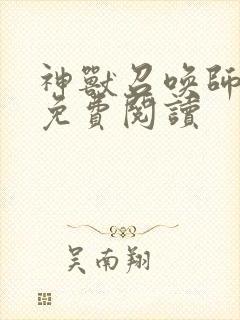 神獸召喚師
免費閱讀
吳南翔